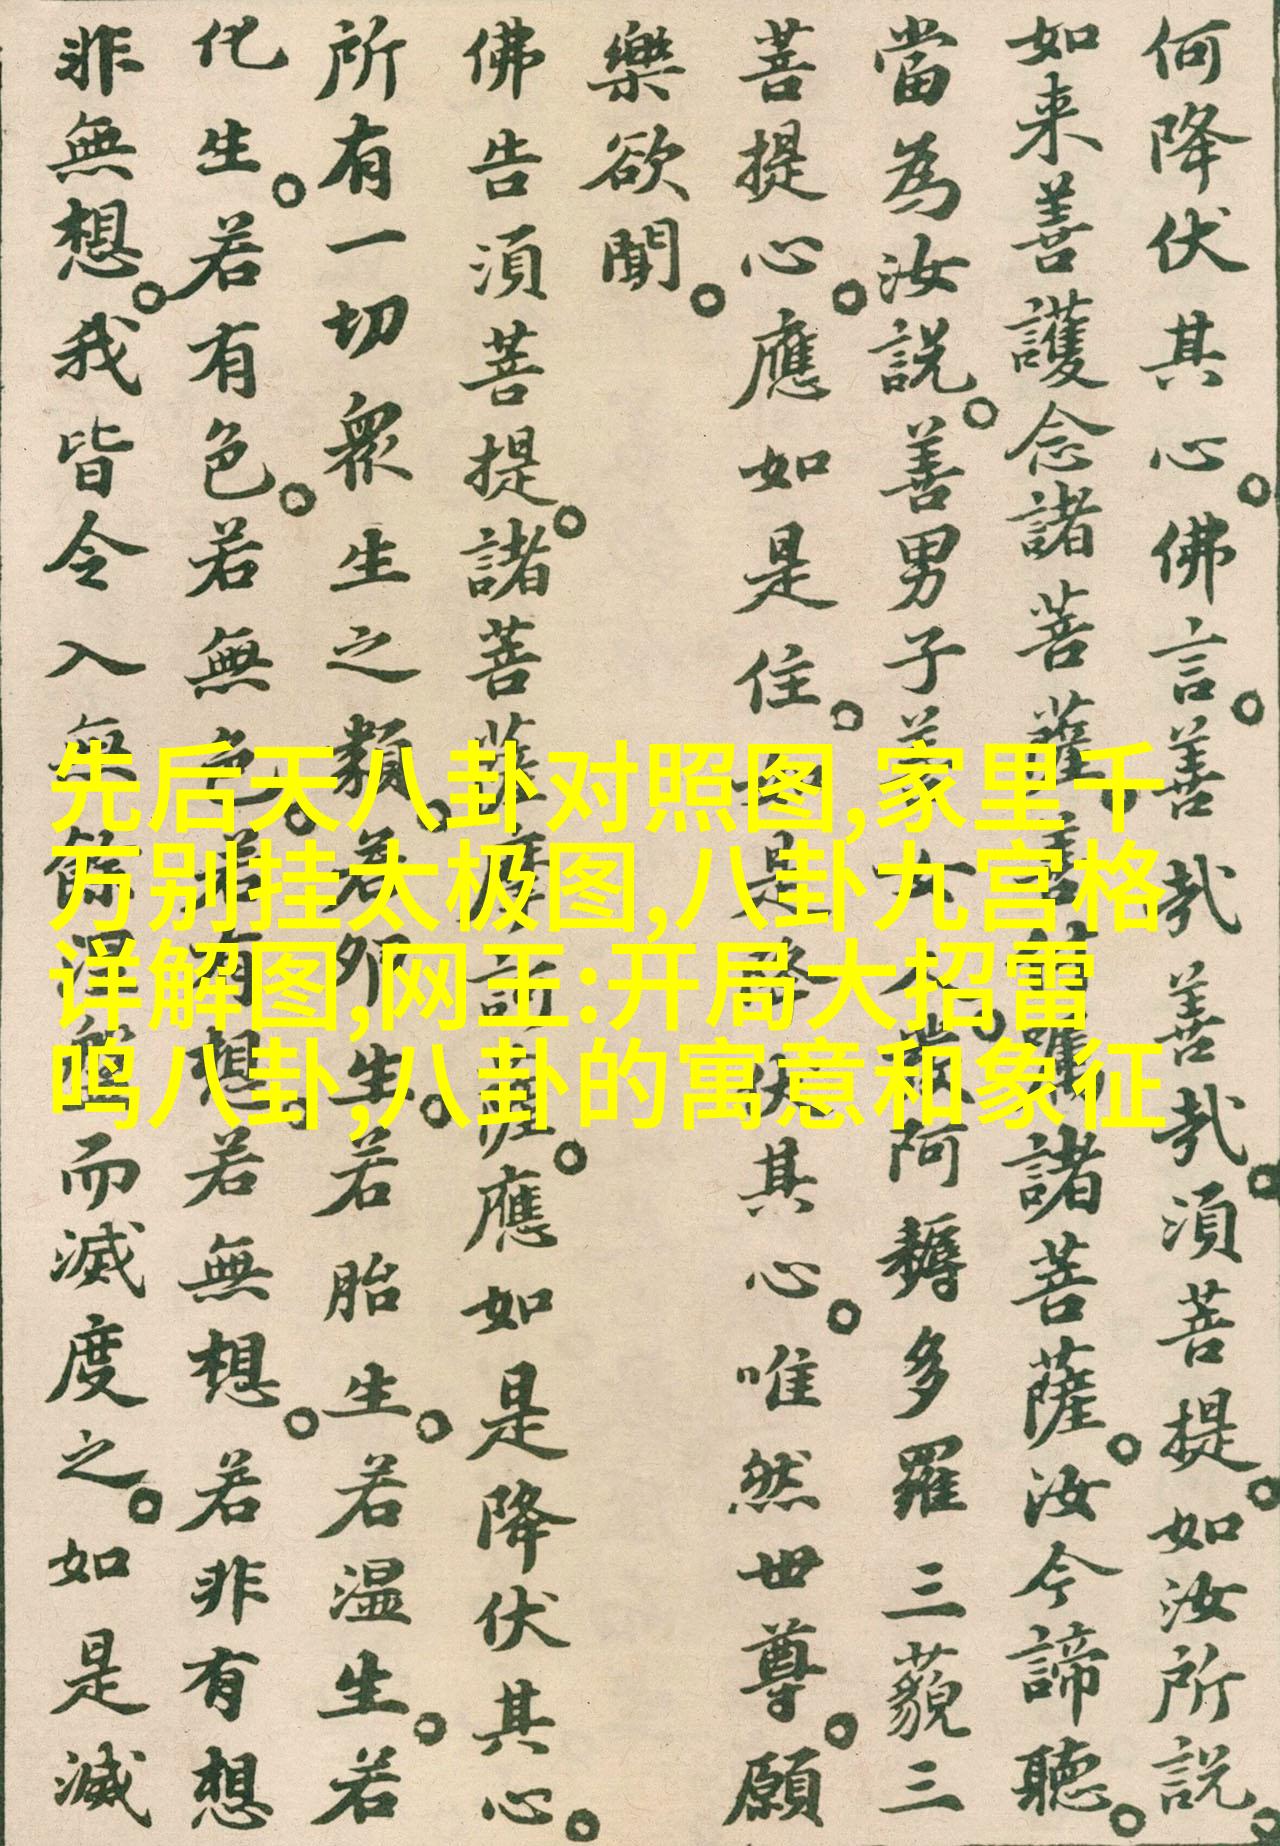 何降伏其心。佛言。善哉善哉。須菩提。如汝所說。
如来善護念諸菩薩。善付囑諸菩薩。汝今諦聽。
當為汝說。善男子善女人。發阿耨多羅三藐三
菩提心。應如是住。如是降伏其心。唯然世尊。願
樂欲聞。
佛告須菩提。諸菩薩摩訶薩。應如是降伏其心。
所有一切衆生之類。若卵生。若胎生。若温生。若
化生。若有色。若無色。若有想。若無想。若非有想
非無想。我皆令入無餘涅槃而滅度之。如是滅
先后天八卦对照图,家里千
万别挂太极图,八卦九宫格
详解图,网王:开局大招雷
鸣八卦,八卦的寓意和象征